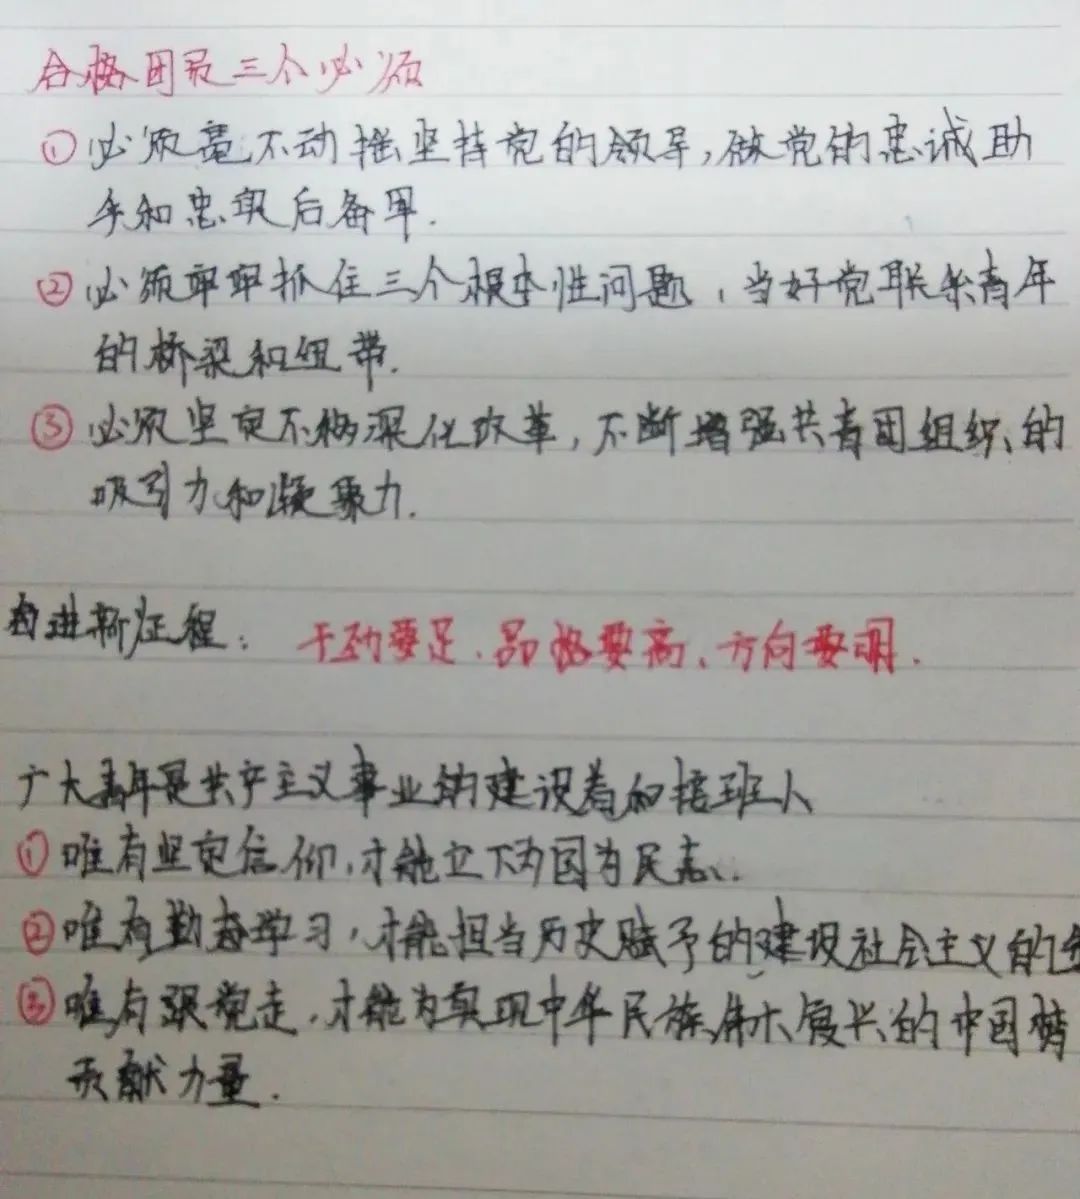 合格团员三个必须
①必须毫不动摇坚持党的领导,做党的忠诚助
手和忠实后备军.
②必须牢牢抓住三个根本性问题,当好党联系青年
的桥梁和纽带.
③必须坚定不移深化改革,不断增强共青团组织的
吸引力和凝聚力.
奋进新征程: 干劲要足、品格要高、方向要明.
广大青年是共产主义事业的建设者和接班人
①唯有坚定信仰,才能立下为国为民志.
②唯有勤奋学习,才能担当历史赋予的建设社会主义的
③唯有跟党走,才能为实现中华民族伟大复兴的中国梦
贡献力量.